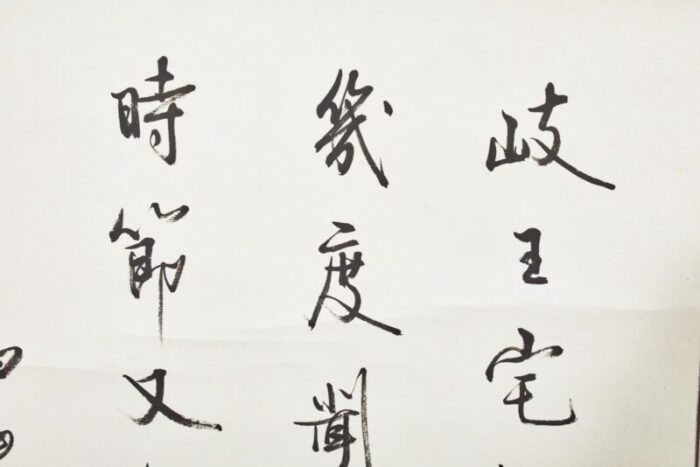 岐王宅
幾度聞
時節又